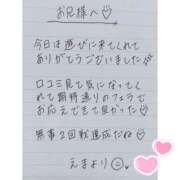 お兄様へ♡
今日は遊びに来てくれて
ありがとうございました
口コミ見て気になってく
れて期待通りのフェラで
お応えできて良かった♡
無事2回戦達成だね♡
えまより